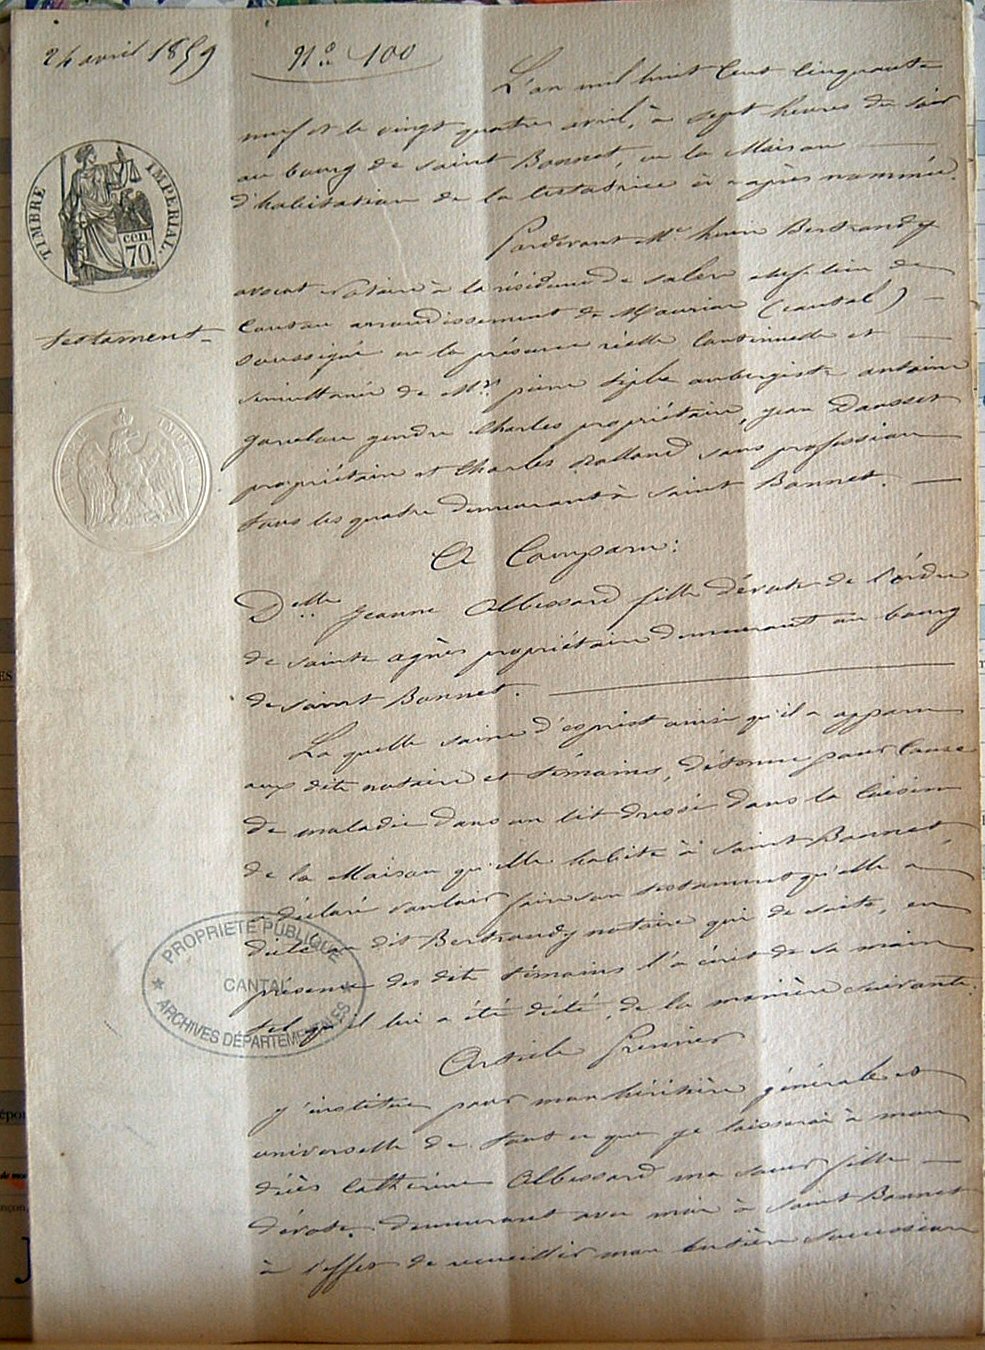 24 avril 1859
N° 100
L'an mil huit cent cinquante
neuf et le vingt quatre avril, à sept heures du soir
au bourg de saint Bonnet, en la Maison
d'habitation de la testatrice ci après nommée.
TIMBRE IMPÉRIAL.
cen. 70.
Pardevant Me henri Bertrandy
avocat notaire à la résidence de salers chef lieu de
Canton arrondissement de Mauriac (cantal)
testament
soussigné en la présence réelle Continuelle et
simultanée de Mrs pierre aubergiste antoine
gendre Charles propriétaire, jean Dausser
propriétaire et Charles Rolland sans profession
tous les quatre demeurant à saint Bonnet.
A Comparu:
Delle jeanne Albessard fille dévote de l'ordre
de sainte agnès propriétaire demeurant au bourg
de saint Bonnet.
La quelle saine d'esprit ainsi qu'il a apparu
aux dits notaire et témoins, détenue pour Cause
de maladie dans un lit dressé dans la Cuisine
de la Maison qu'elle habite à saint Bonnet,
a déclaré vouloir faire son testament qu'elle a
dicté au dit Bertrandy notaire qui de suite, en
présence des dits témoins l'a écrit de sa main
tel qu'il lui a été dicté, de la manière suivante:
PROPRIÉTÉ PUBLIQUE
CANTAL
ARCHIVES DÉPARTEMENTALES
Article Premier
j'institue pour mon héritière générale et
universelle de tout ce que je laisserai à mon
décès Catherine Albessard ma soeur fille
dévote, demeurant avec moi à saint Bonnet
à l'effet de recueillir mon entière succession